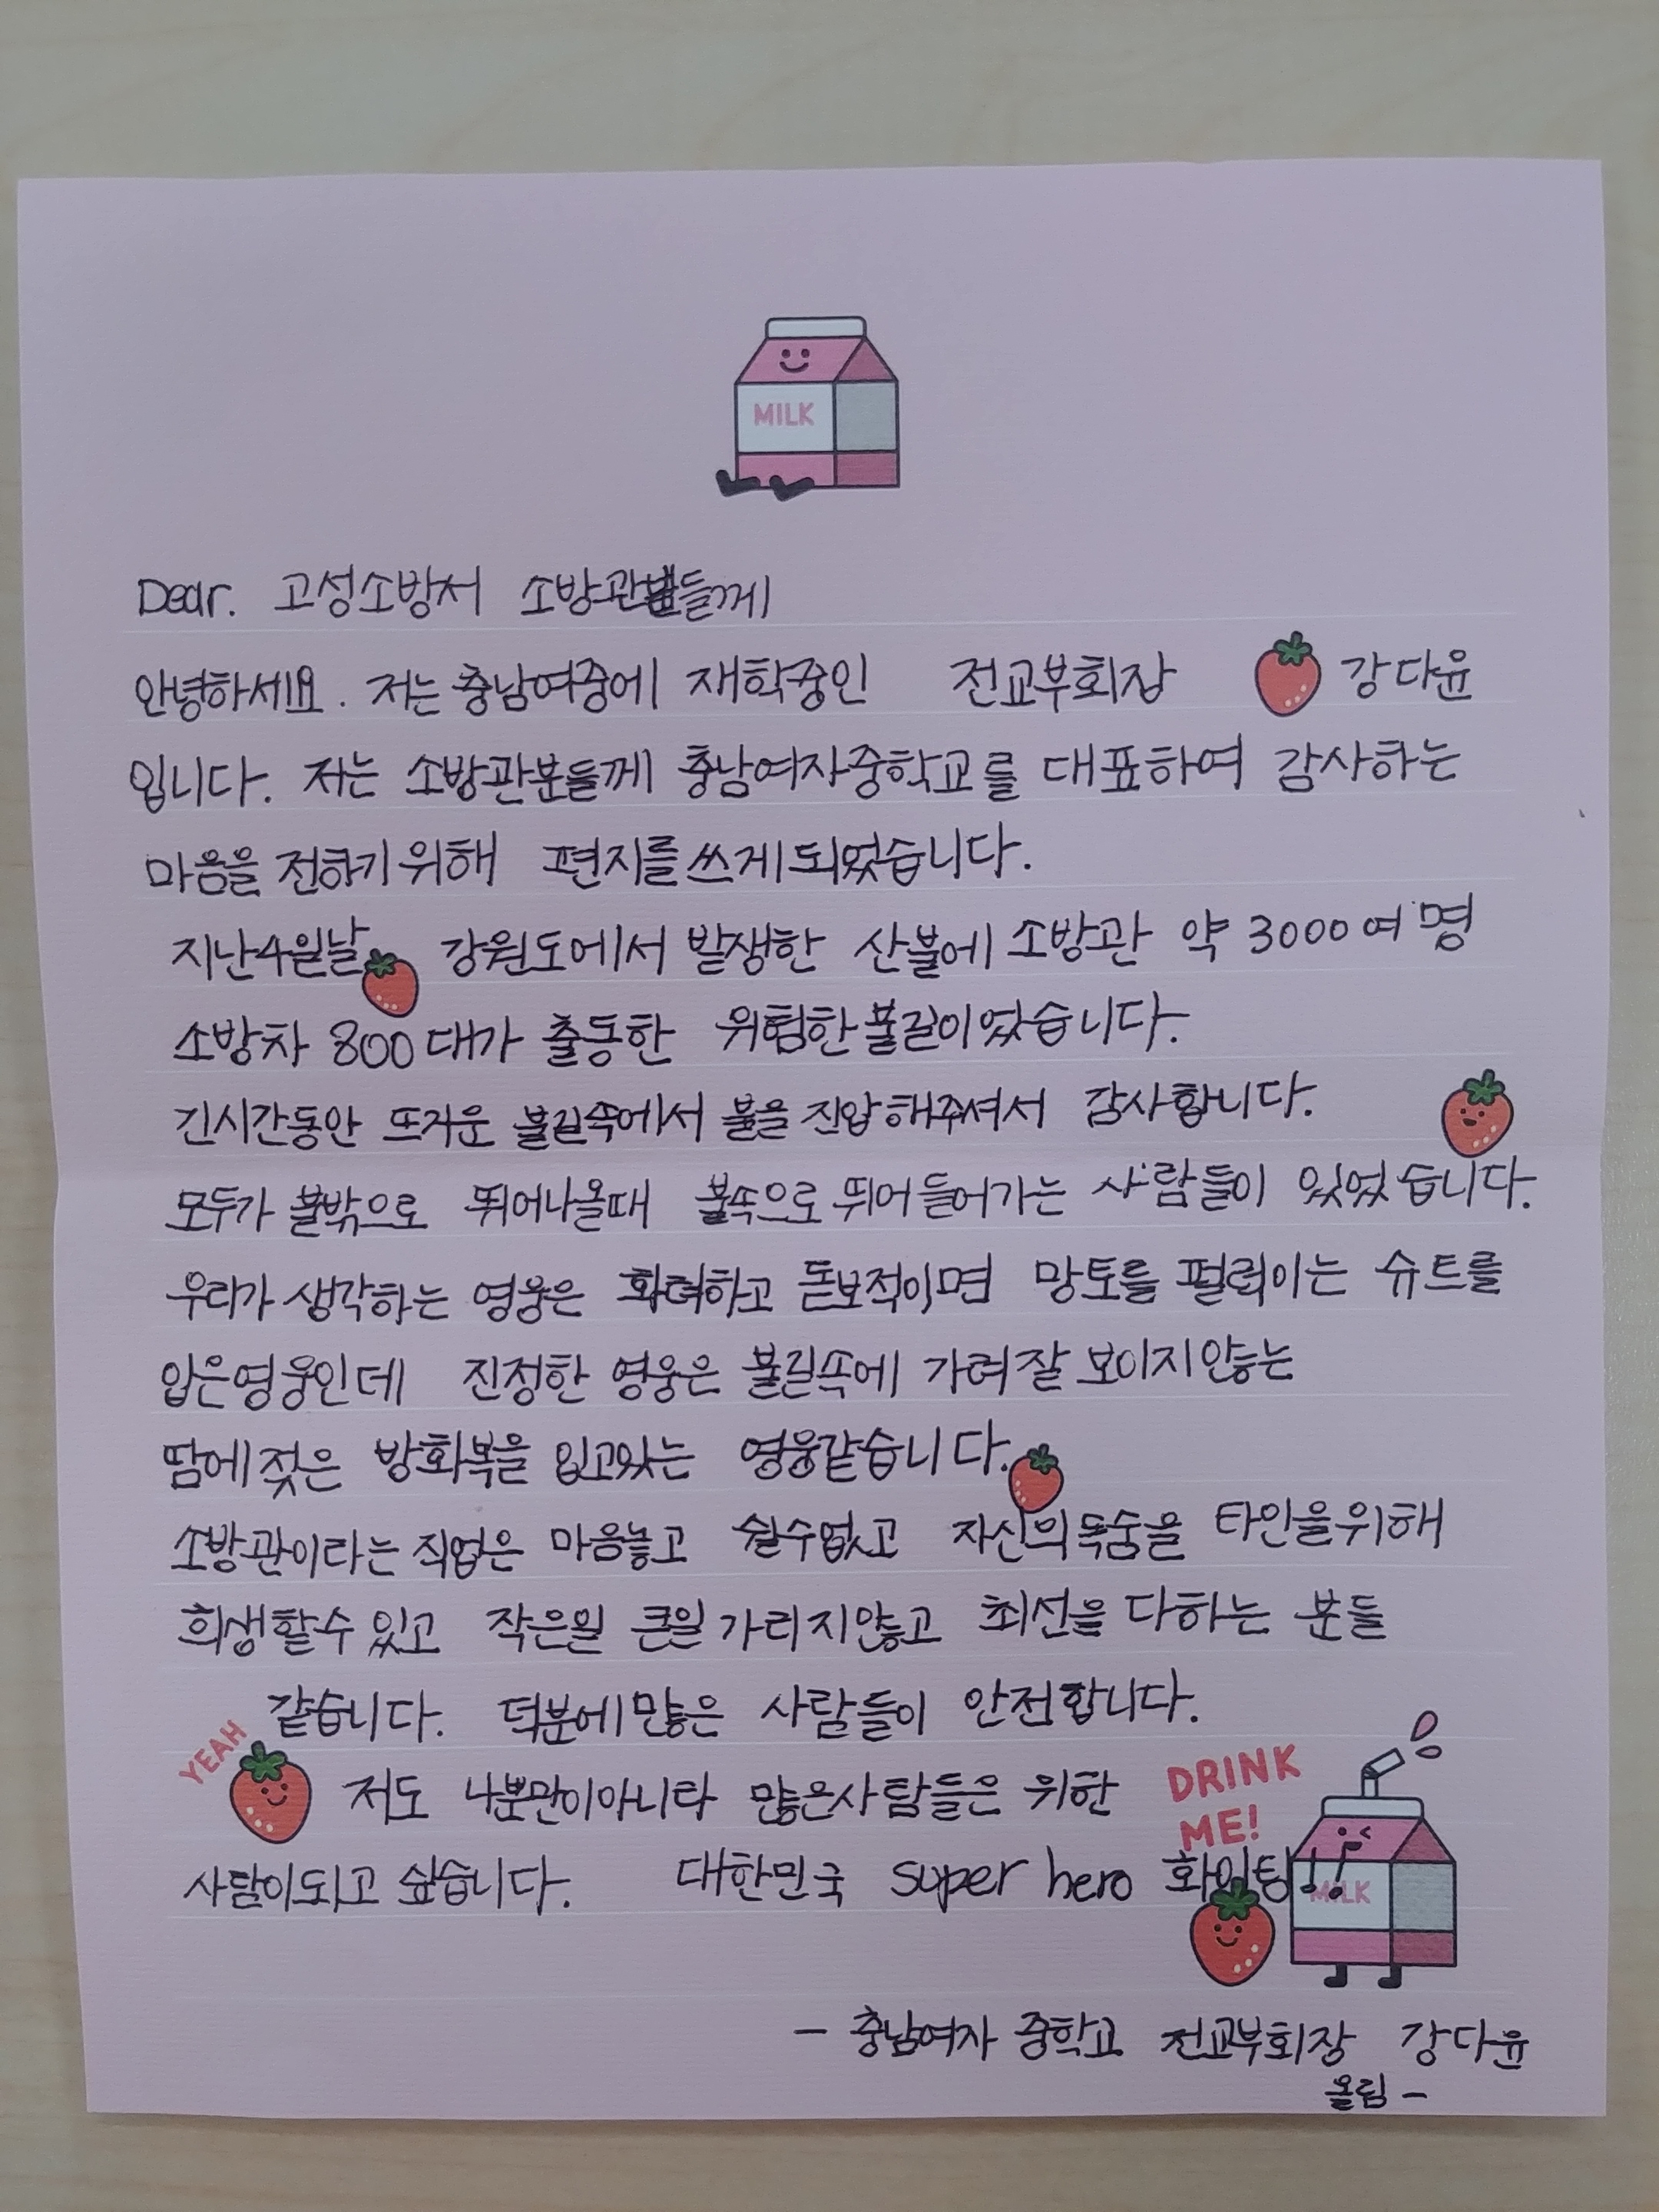 MILK
Dear. 고성소방서 소방관분들께
안녕하세요. 저는 충남여중에 재학중인 전교부회장 강다윤
입니다. 저는 소방관분들께 충남여자중학교를 대표하여 감사하는
마음을 전하기 위해 편지를 쓰게 되었습니다.
지난4월날 강원도에서 발생한 산불에 소방관 약 3000여명
소방차 800대가 출동한 위험한 불길이었습니다.
긴시간동안 뜨거운 불길속에서 불을 진압해주셔서 감사합니다.
모두가 불밖으로 뛰어나올때 불속으로 뛰어들어가는 사람들이 있었습니다.
우리가 생각하는 영웅은 화려하고 돋보적이며 망토를 펄럭이는 슈트를
입은영웅인데 진정한 영웅은 불길속에 가려 잘 보이지않는
땀에 젖은 방화복을 입고있는 영웅같습니다.
소방관이라는 직업은 마음놓고 쉴수없고 자신의 목숨을 타인을위해
희생할수 있고 작은일 큰일 가리지않고 최선을 다하는 분들
같습니다. 덕분에 많은 사람들이 안전합니다.
YEAH
저도 나뿐만이아니라 많은사람들은 위한
DRINK
ME!
사람이되고 싶습니다. 대한민국 super hero 화이팅!!
MILK
- 충남여자 중학교 전교부회장 강다윤
올림 -